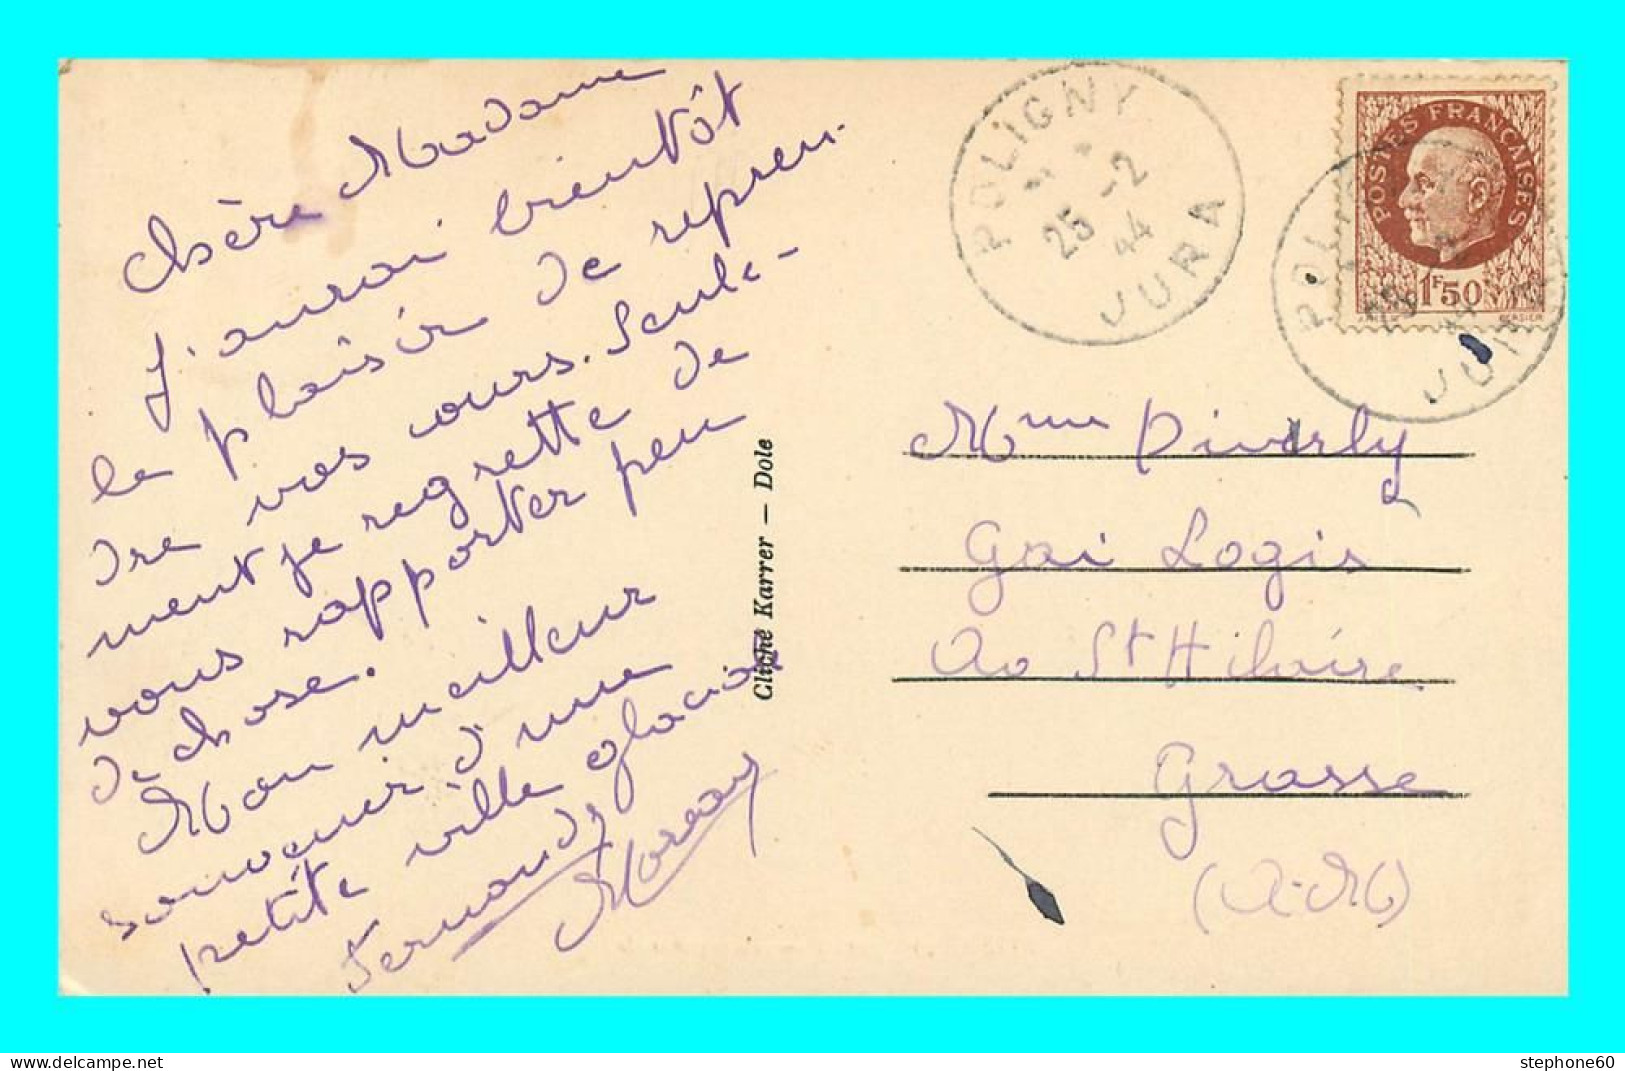 Chère Madame
J'aurai bientôt
le plaisir de repren-
dre vos cours. Seule-
ment je regrette de
vous rapporter peu
de chose.
Mon meilleur
souvenir d'une
petite ville glaciale
Fernande
Moreau
Cliché Karrer — Dole
POLIGNY
25 -2
44
JURA
POSTES FRANÇAISES
1F50
BERSIER
JURA
Mme Diverly
Gai Logis
Av St Hilaire
Grasse
(A-M)
stephone60